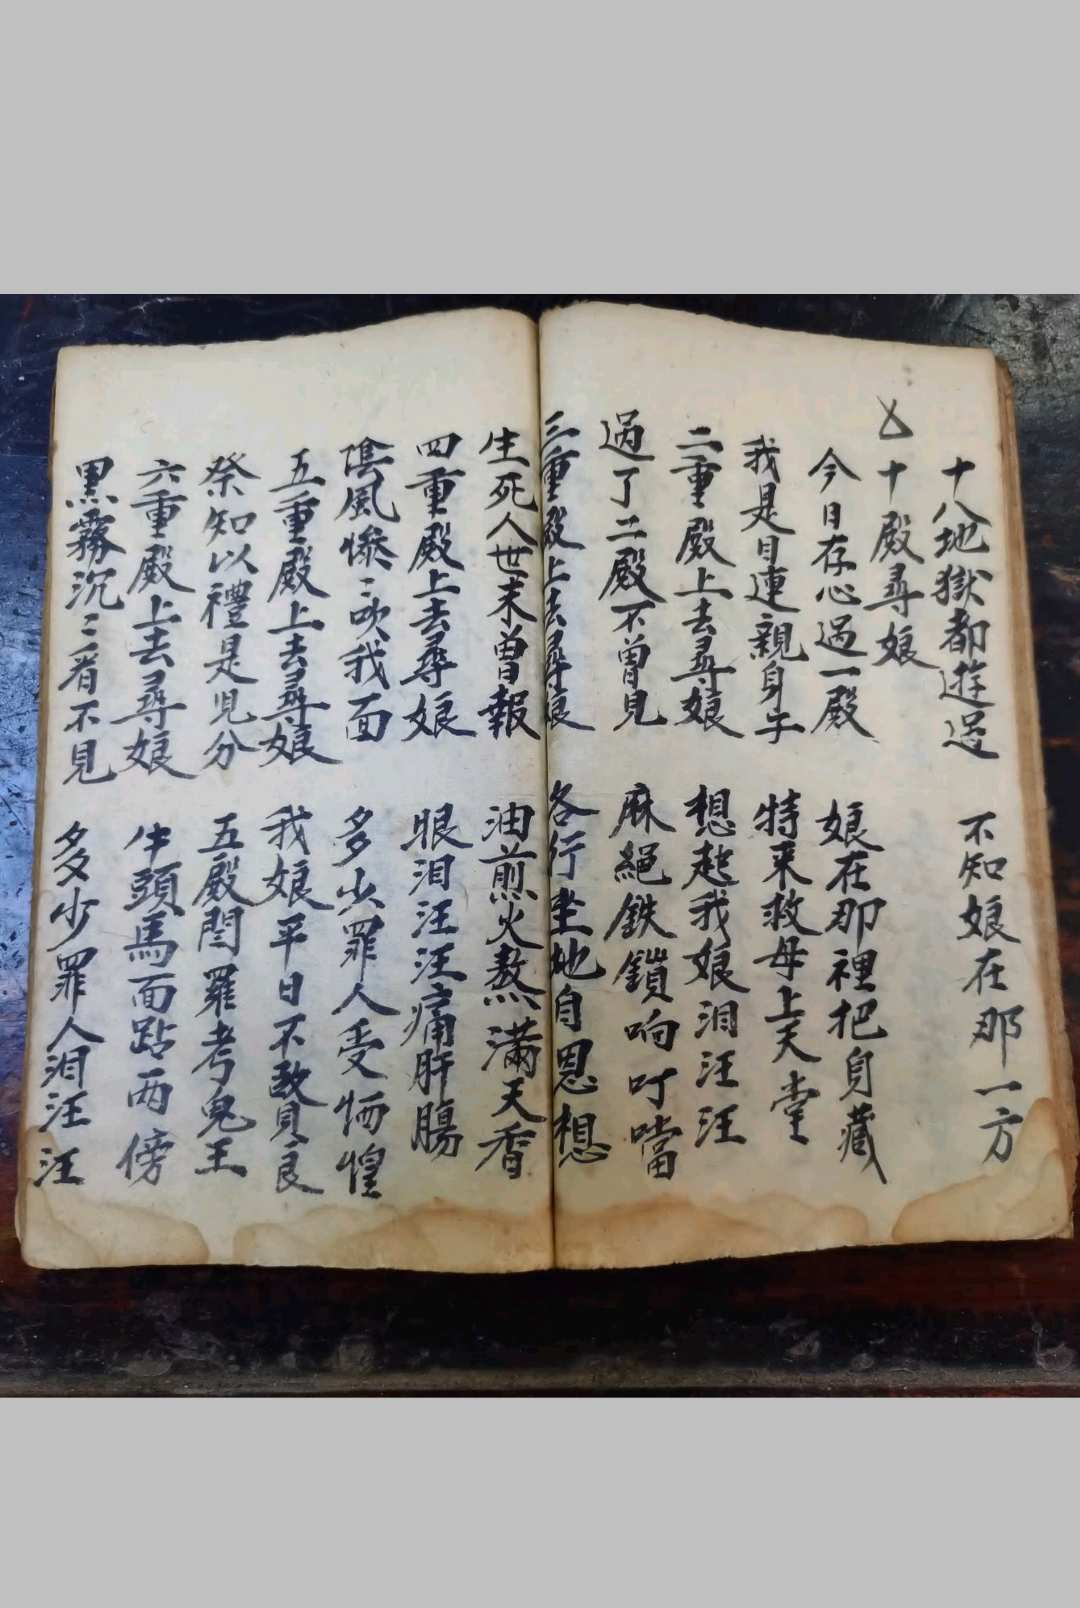 十八地獄都遊過 不知娘在那一方
十殿尋娘
今日存心過一殿 娘在那裡把身藏
我是目連親身子 特来救母上天堂
二重殿上去尋娘 想起我娘泪汪汪
過了二殿不曾見 麻繩鉄鎖响叮噹
三重殿上去尋娘 各行坐地自思想
生死人世末曾報 油煎火熬滿天香
四重殿上去尋娘 眼泪汪汪痛肝腸
陰風慘〻吹我面 多少罪人受恓惶
五重殿上去尋娘 我娘平日不敢良
祭知以禮是児分 五殿閻羅考鬼王
六重殿上去尋娘 牛頭馬面跕两傍
黒霧沉〻看不見 多少罪人泪汪汪